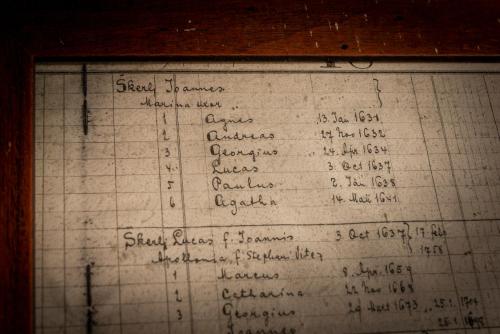 Škerlj Joannes
Marina uxor
1 Agnes 13. Jan 1631
2 Andreas 27 Nov 1632
3 Georgius 24. Apr 1634
4. Lucas 3. Oct 1637
5 Paulus 2. Jan 1638
6 Agatha 14. Maii 1641
Škerlj Lucas f. Joannis 3 Oct 1637 17 feb
Apollonia, f. Stephani Vitez 1758
1 Marcus 8. Apr. 1659
2 Catharina 22 Nov 1668
3 Georgius 29 Mart 1673 25.1.
Joannes 25.1.